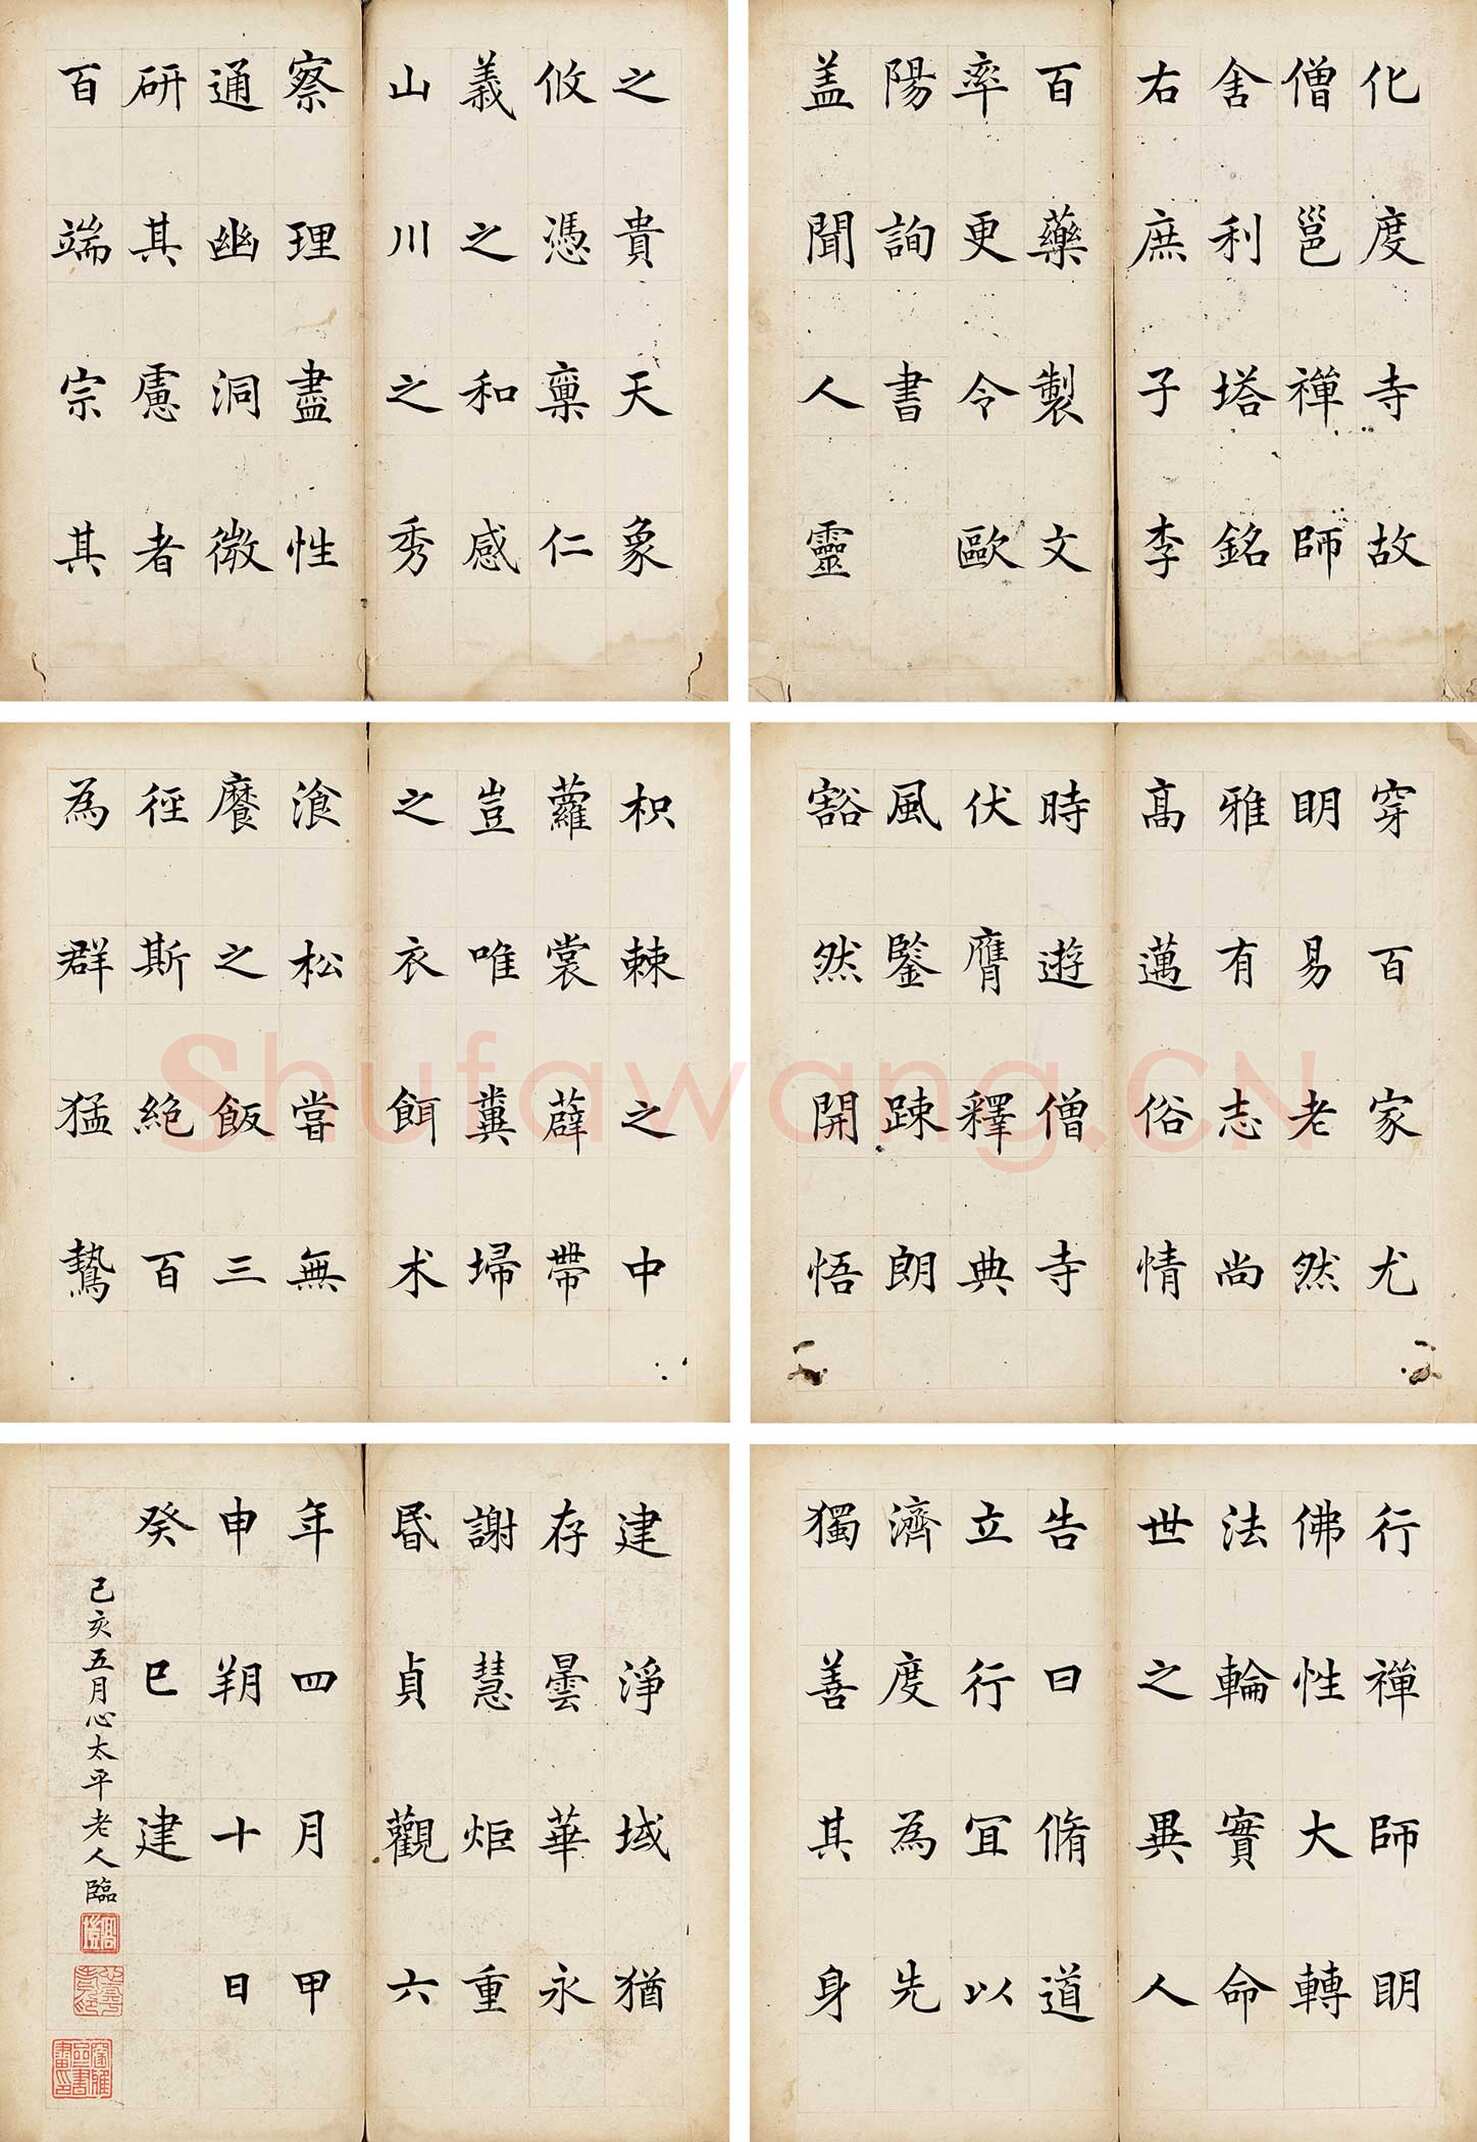 化度寺故
僧邕禪師
舍利塔銘
右庶子李
百藥製文
率更令歐
陽詢書
盖聞人靈
之貴天象
攸憑稟仁
義之和感
山川之秀
察理盡性
通幽洞微
研其慮者
百端宗其
穿百家尤
明易老然
雅有志尚
高邁俗情
時遊僧寺
伏膺釋典
風鑒踈朗
豁然開悟
枳棘之中
蘿裳薜帶
豈唯糞埽
之衣餌朮
飡松嘗無
麇之飯三
徑斯絕百
為群猛鷙
行禪師明
佛性大轉
法輪實命
世之異人
告曰脩道
立行宜以
濟度為先
獨善其身
建淨域猶
存曇華永
謝慧炬重
昬貞觀六
年四月甲
申朔十日
癸巳建
己亥五月心太平老人臨
Shufawang.CN